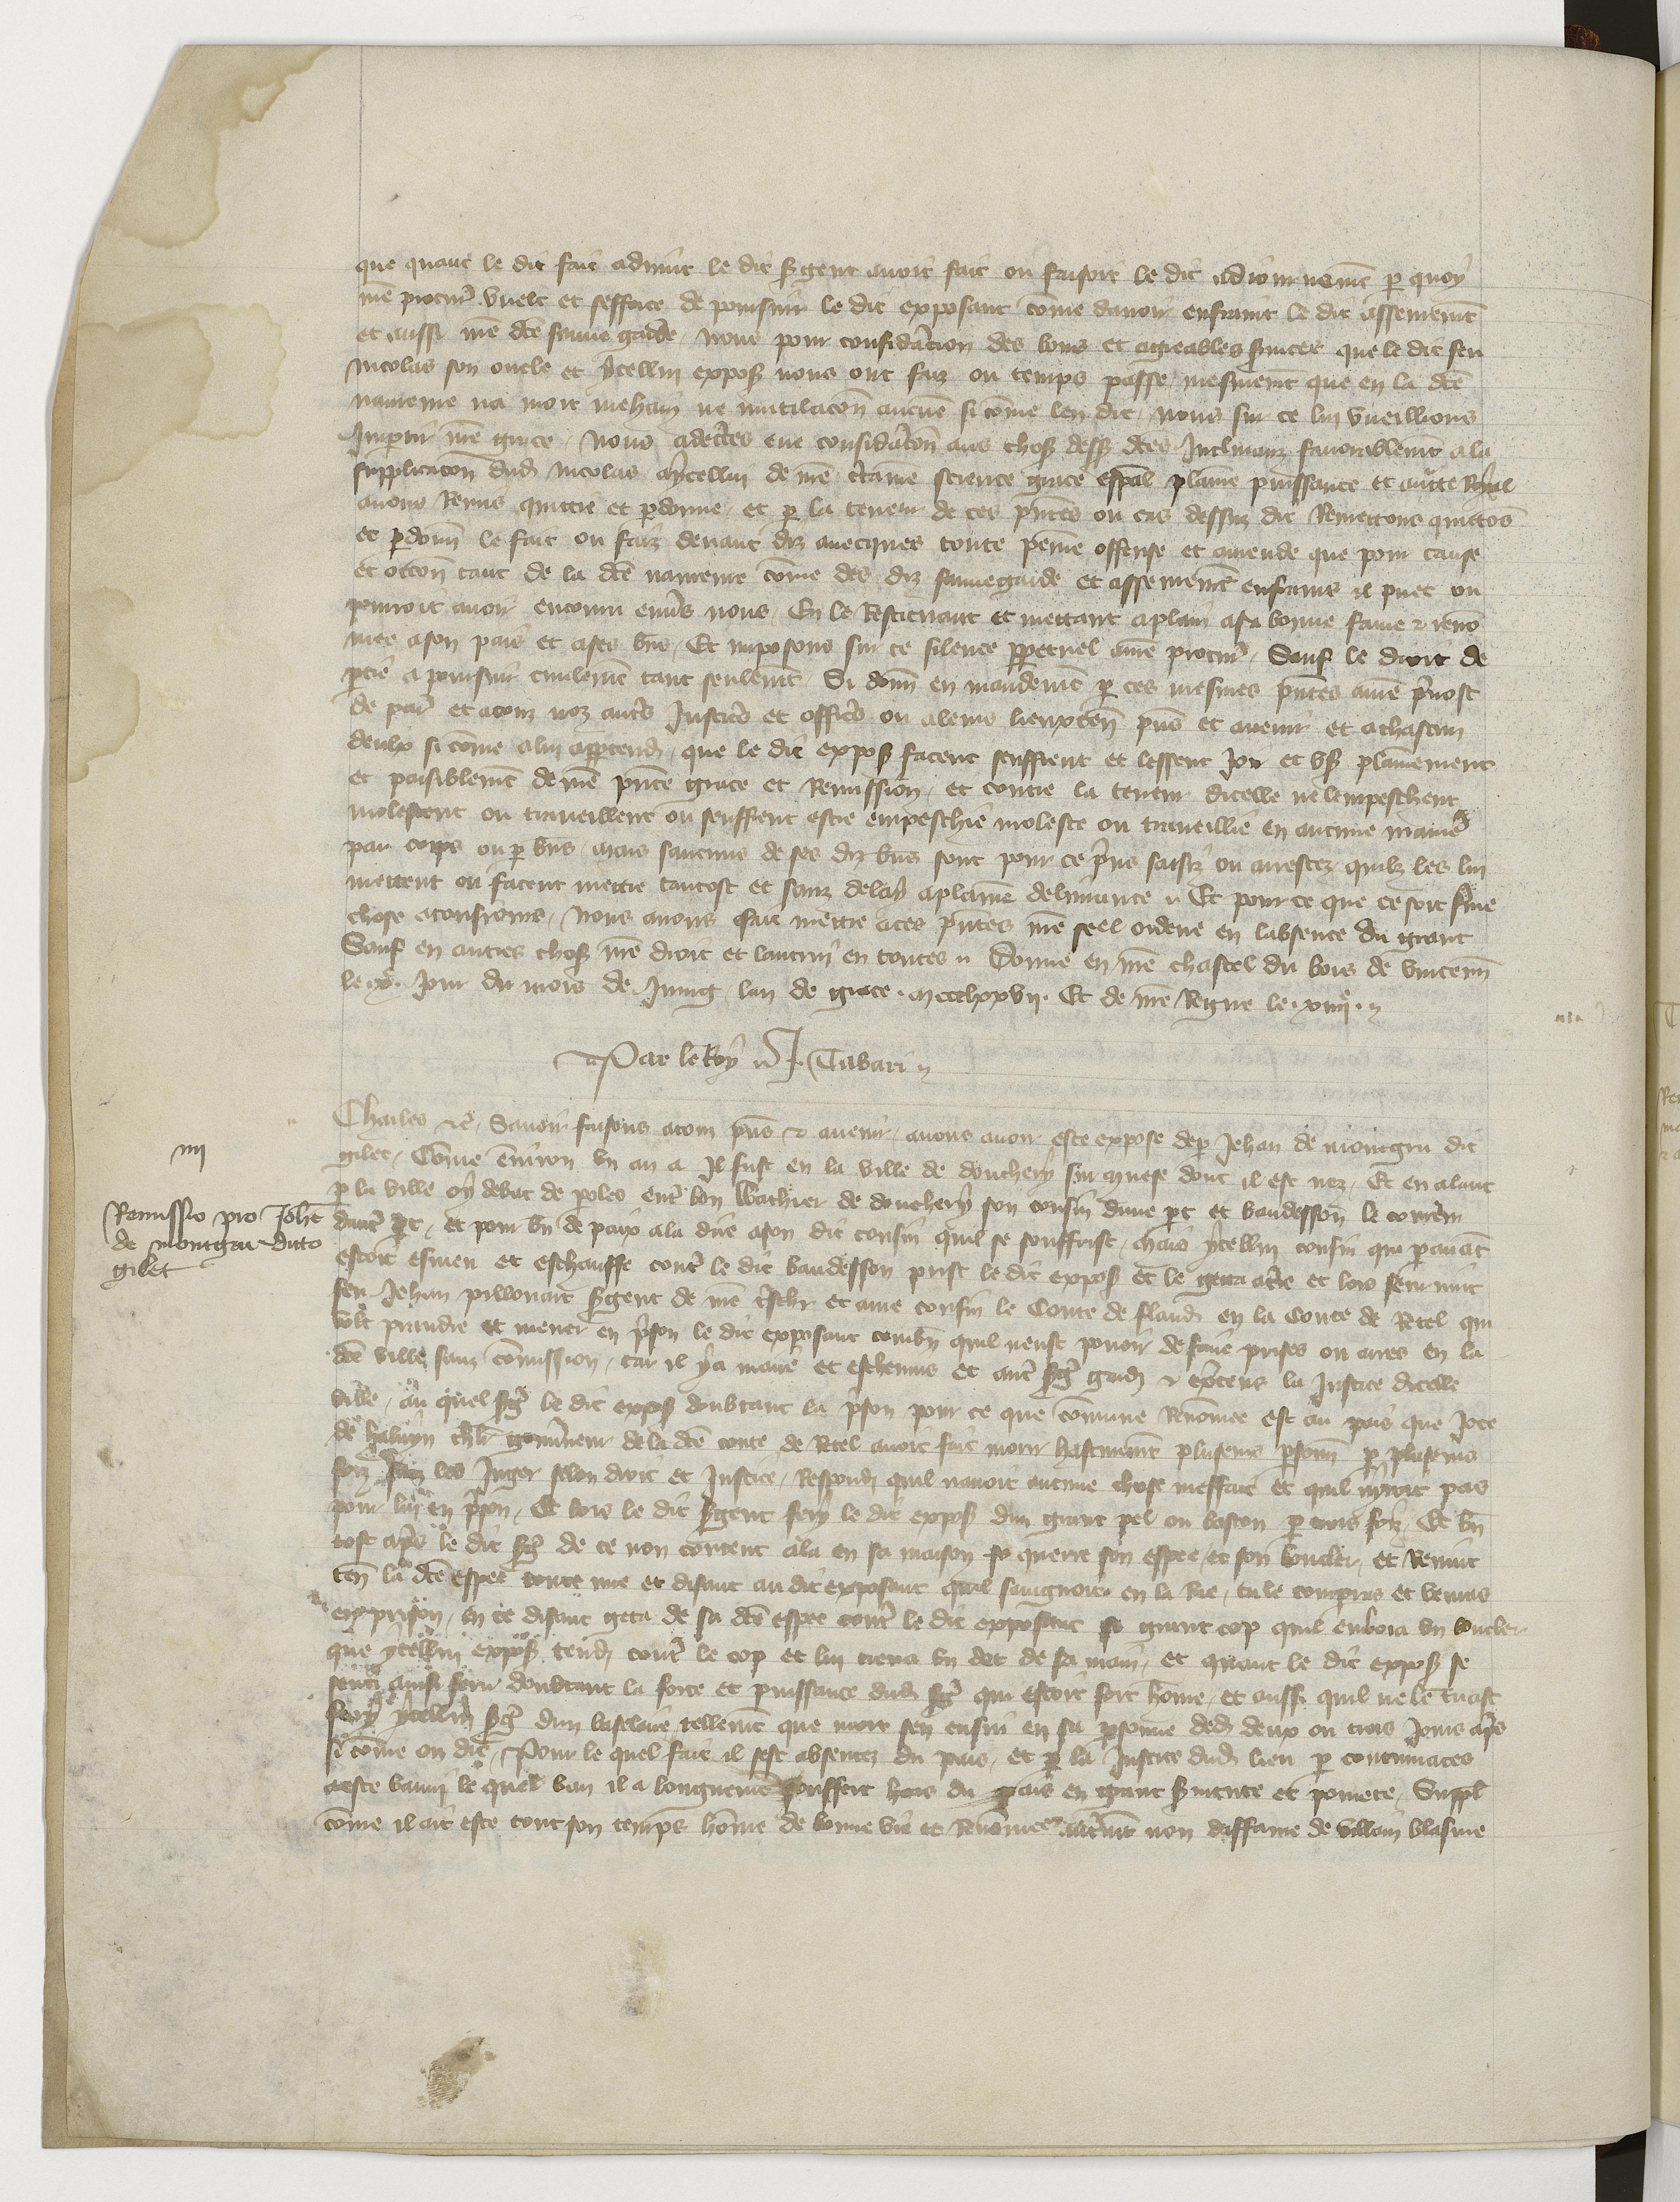 que quant le dit fait advint le dit sgent avoit fait ou faisoit le dit adiournemēt p quoy
nrē procur̄ vuelt et sefforce de poursuir le dit exposant cōme davoir enfraint le dit assemēnt
et aussi nrē dcē sauve garde nous pour considēracion des bons et agreables svices que le dit feu
nicolas son oncle et ycellui expos nous ont faiz ou temps passe mesmemēt que en la dcē
navreure na mort mehaing ne mutilacōn aucune si cōme len dit nous sur ce lui vueillions
Impartir nrē grace Nous adcertes eue considēracōn aus choses dess dcēs Inclinanz favorablemēt a la
supplicacōn dud nicolas aycellui de nrē ctaine science grace espāl plaine puissance et auctē Royal
avons Remis quittie et pdonne et p la teneur de ces pntēs ou cas dessus dit Remettons quittōs
et pdonn le fait ou faiz devant diz avecques toute peine offense et amende que pour cause
et occōn tant de la dcē navreure cōme des diz sauvegarde et assemēnt enfrains il puet ou
pourroit avoir encouru envs nous En le Restituant et mettant aplain asa bonne fame et renō
mee a son pais et a ses bns Et imposons sur ce silence ppetuel a nrē procur̄ Sauf le droit de
ptie a poursuir civilemēt tant seulemēt Si donn en mandemēt p ces mesmes pntēs a nrē pvost
de par et a touz noz autrs Justiciers et officrs ou a leurs lieuxten pns et avenir et achascun
deulx si cōme a lui appartend que le dit expos facent seuffrent et lessent Joir et us plainement
et paisiblemēt de nrē pntē grace et Remission et contre la teneur dicelle ne lempeschent
molestent ou traveillent ou seuffrent estre empeschie moleste ou traveillie en aucune maniē
par corps ou p bns mais saucuns de ses diz bns sont pour ce pris saisiz ou arrestez quilz les lui
mettent ou facent mettre tantost et sanz delay a plaine delivrance Et pour ce que ce soit ferme
chose atousiours Nous avons fait mettre a ces pntēs nrē seel ordene en labsence du grant
Sauf en autres choses nrē droit et lautruy en toutes Donne en nrē chastel du bois de vincenn
le xe Jour du mois de Juing lan de grace mccclxxvii Et de nrē Regne le xiiiie
Par le Roy J Tabari
Charles etc Savoir faisons a touz pns et avenir a nous avoir este expose de p Jehan de montgru dit
gilet Cōme environ un an a Il fust en la ville de donchery sur muese dont il est nez Et en alant
p la ville oy debat de poles entre bon Wathier de donchery son cousin dune pt et baudesson le
dautre pt et pour bn de paix ala dire a son dit cousin quil se souffrist mais ycellui cousin qui pavāt
estoit esmeu et eschauffe contre le dit baudesson prist le dit expos et le getta a tre et lors survint
feu Jehan sgent de nrē et ame cousin le Conte de fland en la Conte de Retel qui
volt prandre et mener en pson le dit exposant combn quil neust povoir de faire prises ou arres en la
dcē ville sanz cōmission car il ya maire et eschevins et autre sgt gard et exercens la Justice dicelle
ville au quel sgt le dit expos doubtant la pson pour ce que cōmune Renōmee est au pais que Joce
de haluyn chlr gouverneur de la dcē conte de Retel avoit fait morir hastivemēt pluseurs psonn p pluseurs
foiz sanz les Juger selon droit et Justice Respond quil navoit aucune chose meffait et quil nyroit pas
pour lui en pson Et lors le dit sgent fery le dit expos dun grant pel ou baston p trois foiz Et bn
tost aps le dit sgt de ce non content ala en sa maison querre son espee et son boucler et Revint
ten la dcē espee toute nue et disant au dit exposant en la Rue tu le comparras et venras
en prison en ce disant geta de sa dcē espee contre le dit exposant si grant cop quil un boucler
que ycellui expos tend contre le cop et lui trena un det de sa main et quant le dit expos se
senti ainsi feru doubtant la force et puissance dud sgt qui estoit fort hōme et aussi quil ne le tuast
fery ycellui sgt dun baselaire tellemēt que mort sen ensui en sa psonne ded deux ou trois Jours aps
si cōme on dit Pour le quel fait il sest absentez du pais et p la Justice dud lieu p contumaces
a este banni le quel ban il a longuemēt souffert hors du pais en grant et povrete Suppl
cōme il ait este tout son temps hōme de bonne vie et Renōmee non diffame de villain blasme
iiii
Remissio pro Johē
de montgru dicto
gilet